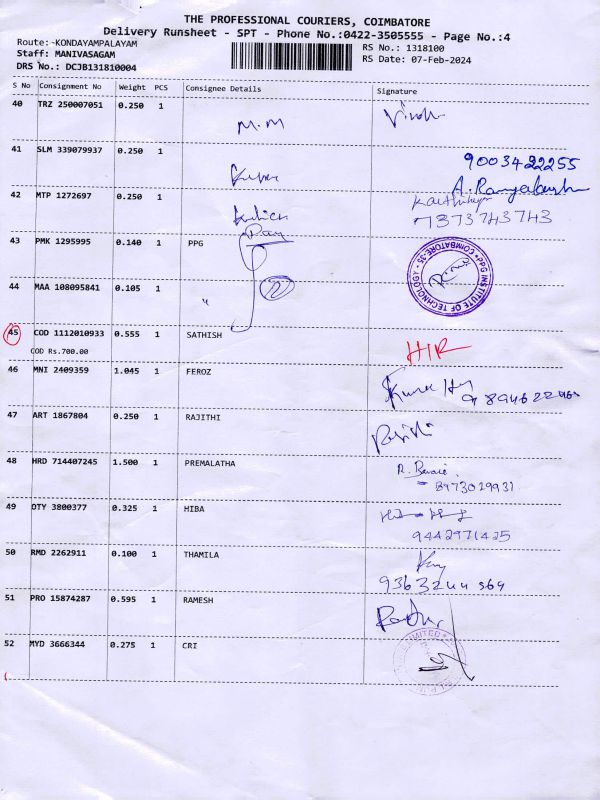 THE PROFESSIONAL COURIERS, COIMBATORE
Delivery Runsheet - SPT - Phone No.:0422-3505555 - Page No.:4
Route:-KONDAYAMPALAYAM
RS No.: 1318100
Staff: MANIVASAGAM
RS Date: 07-Feb-2024
DRS No.: DCJB131810004
S No Consignment No Weight PCS Consignee Details Signature
40 TRZ 250007051 0.250 1 M.M
41 SLM 339079937 0.250 1
9003422255
42 MTP 1272697 0.250 1
7373743743
43 PMK 1295995 0.140 1 PPG
PPG INSTITUTE OF TECHNOLOGY * COIMBATORE-35 *
44 MAA 108095841 0.105 1 " 2
45 COD 1112010933 0.555 1 SATHISH
COD Rs.700.00
46 MNI 2409359 1.045 1 FEROZ
47 ART 1867804 0.250 1 RAJITHI
48 HRD 714407245 1.500 1 PREMALATHA
8973029931
49 OTY 3800377 0.325 1 HIBA
9442971425
50 RMD 2262911 0.100 1 THAMILA
9363244 564
51 PRO 15874287 0.595 1 RAMESH
52 MYD 3666344 0.275 1 CRI